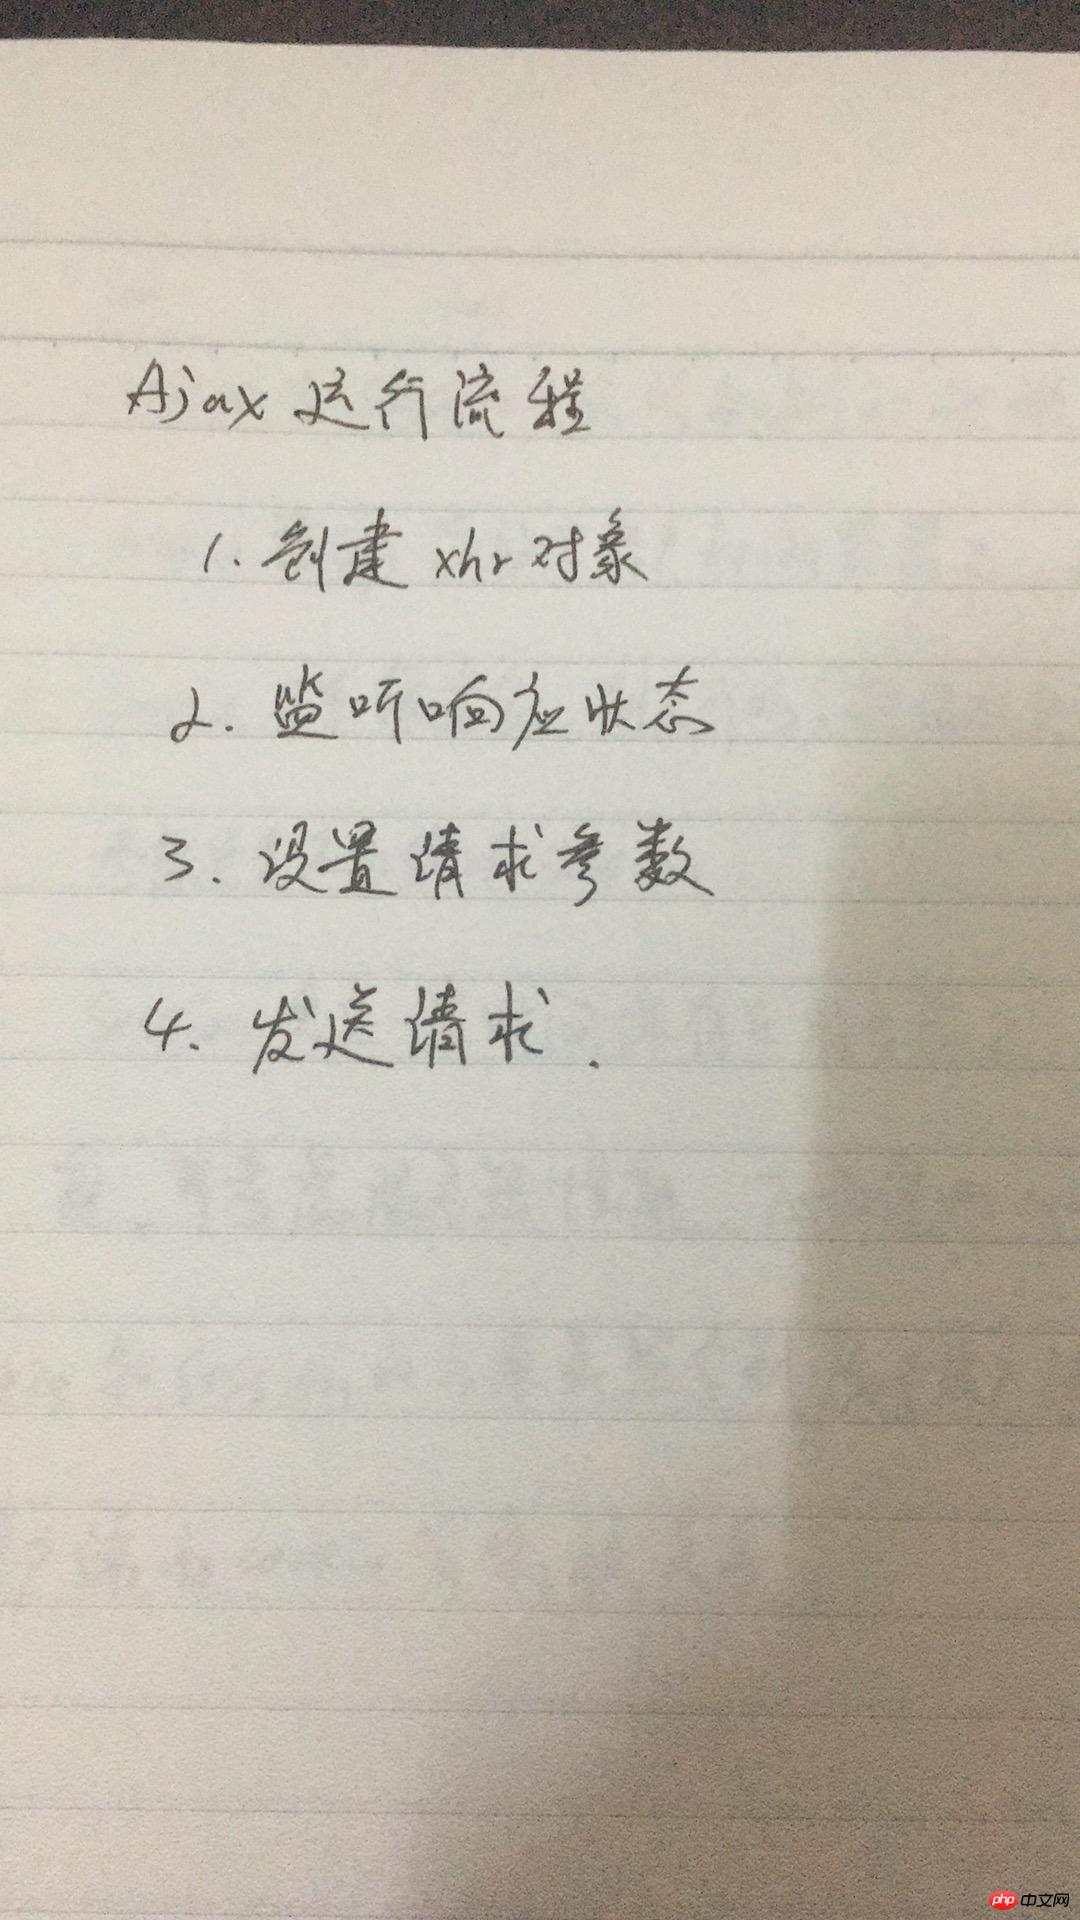 Ajax 运行流程
1. 创建 xhr 对象
2. 监听响应状态
3. 设置请求参数
4. 发送请求.
php 中文网